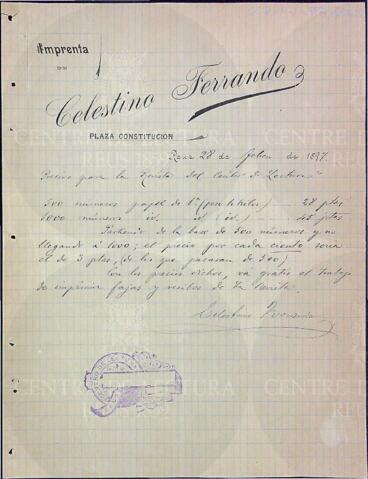 Imprenta
DE
Celestino Ferrando
PLAZA CONSTITUCIÓN
Reus 28 de de 1897
Precios para la Revista del Centro de Lectura
500 números papel de 1ª ( kilos) 28 ptas
1000 números id. id. (id.) 45 ptas
Partiendo de la base de 500 números y no
llegando á 1000; el precio por cada ciento sería
el de 3 ptas, (de los que pasaran de 500)
Con los precios dichos, va gratis el trabajo
de imprimir fajas y recibos de la revista.
Celestino Ferrando
CENTRE DE LECTURA
REUS 1859